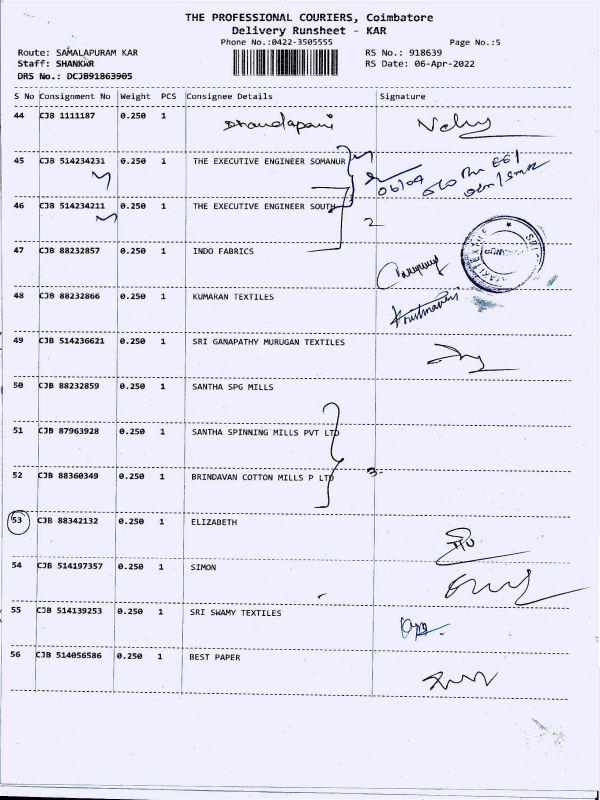 THE PROFESSIONAL COURIERS, Coimbatore
Delivery Runsheet - KAR
Phone No.:0422-3505555 Page No.:5
Route: SAMALAPURAM KAR RS No.: 918639
Staff: SHANKAR RS Date: 06-Apr-2022
DRS No.: DCJB91863905
S No Consignment No Weight PCS Consignee Details Signature
44 CJB 1111187 0.250 1 Dhandapani
45 CJB 514234231 0.250 1 THE EXECUTIVE ENGINEER SOMANUR
06/04
46 CJB 514234211 0.250 1 THE EXECUTIVE ENGINEER SOUTH
2
47 CJB 88232857 0.250 1 INDO FABRICS
48 CJB 88232866 0.250 1 KUMARAN TEXTILES
49 CJB 514236621 0.250 1 SRI GANAPATHY MURUGAN TEXTILES
50 CJB 88232859 0.250 1 SANTHA SPG MILLS
51 CJB 87963928 0.250 1 SANTHA SPINNING MILLS PVT LTD
52 CJB 88360349 0.250 1 BRINDAVAN COTTON MILLS P LTD 3
53 CJB 88342132 0.250 1 ELIZABETH
54 CJB 514197357 0.250 1 SIMON
55 CJB 514139253 0.250 1 SRI SWAMY TEXTILES
56 CJB 514056586 0.250 1 BEST PAPER